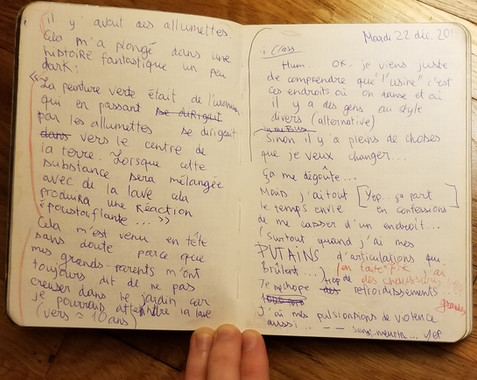 il y avait des allumettes
Cela m'a plongé dans une
histoire fantastique un peu
dark :
« La peinture verte était de l'uranium
qui en passant se dirigeait
par les allumettes se dirigeait
dans vers le centre de
la terre. Lorsque cette
substance sera mélangée
avec de la lave cela
produira une réaction
"poustarflante ... »)
Cela m'est venu en tête
sans doute parce que
mes grands-parents m'ont
toujours dit de ne pas
creuser dans le jardin car
je pourrais atteindre la lave
(vers ≈ 10 ans)
Mardi 22 déc. 20
: Class
Hum... OK. je viens juste
de comprendre que "l'usine" c'est
ces endroits où on rame et où
il y a des gens au style
divers (alternative)
Sinon il y a pleins de choses
que je veux changer...
Ça me dégoûte...
Mais j'ai tout [Yep.. ça part
le temps envie en confessions
de me casser d'un endroit...
(surtout quand j'ai mes
PUTAINS d'articulations qui
brûlent...)
Je trop de refroidissements
des chaussures
grandes
J'ai mes pulsionsions de violence
aussi...